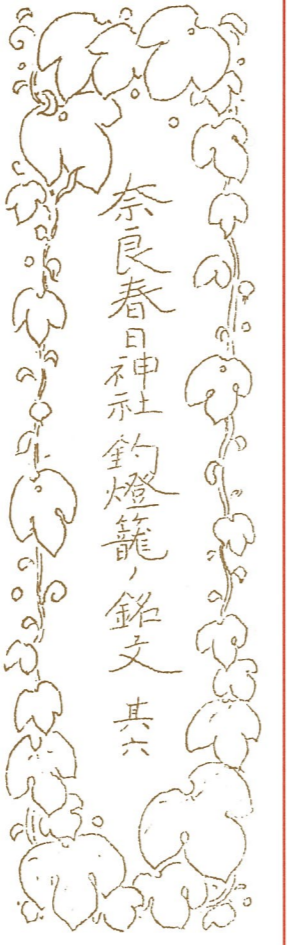 奈良春日神社釣燈籠ノ銘文 其六